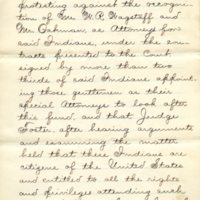 protesting against the recogni-
tion of Mr. W. P. Wagstaff and
Mr. Oatman as Attorneys for
said Indians, under the con-
tracts presented to the Court
signed by more than two
thirds of said Indians appoint
ing those gentlemen as their
special Attorneys to look after
this fund, and that Judge
Foster, after hearing arguments
and examining the matter
held that these Indians are
citizens of the United States
and entitled to all the rights
and privileges attending such